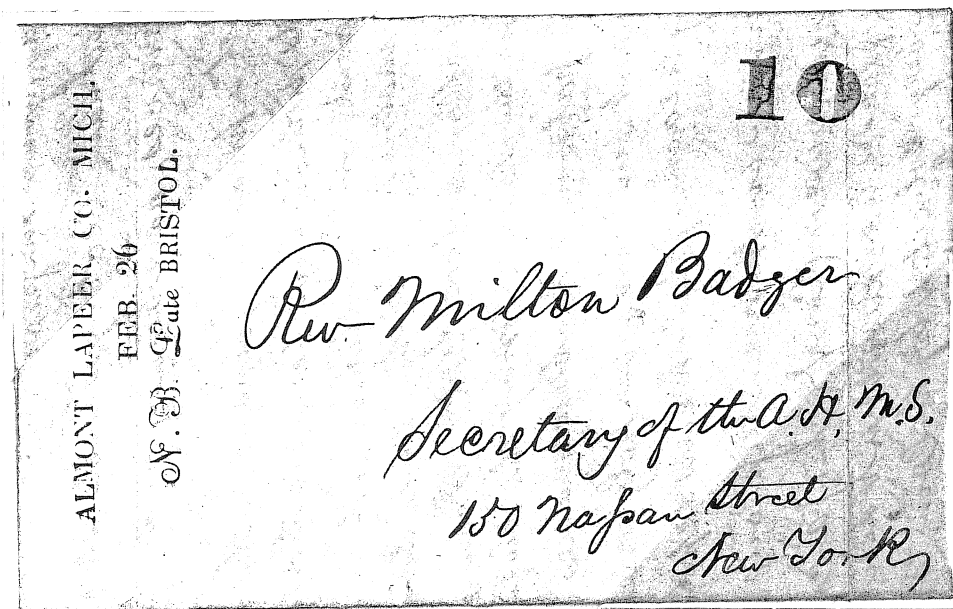 ALMONT LAPEER CO. MICH.
FEB. 26
N. B. Late BRISTOL.
10
Rev. Milton Badger
Secretary of the A. H. M. S.
150 Nassau Street
New York,